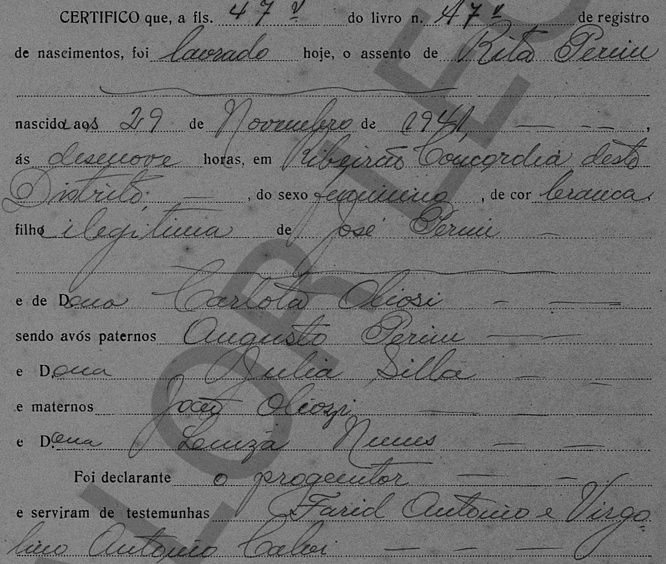 CERTIFICO que, a fls. 47 v do livro n. 47 v de registro
de nascimentos, foi lavrado hoje, o assento de Rita Perim
nascida aos 29 de Novembro de 1941,
ás desenove horas, em Ribeirão Concordia deste
Distrito, do sexo feminino, de cor branca
filha ilegitima de José Perim
e de Dona Carlota Oliosi
sendo avós paternos Augusto Perim
e Dona Julia Silla
e maternos João Oliozi
e Dona Luiza Nunes
Foi declarante o progenitor
e serviram de testemunhas Farid Antonio e Virgo-
lino Antonio Calvi
VALOR LEG